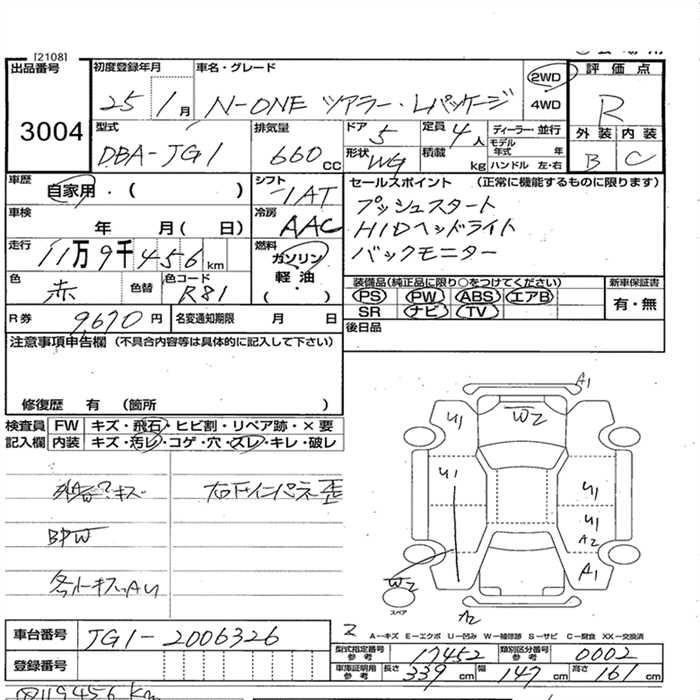 [2108]
出品番号 3004
初度登録年月 25 1月
車名・グレード N-ONE ツアラー・Lパッケージ
2WD
4WD
評価点 R
外装 B 内装 C
型式 DBA-JG1
排気量 660 cc
ドア 5
形状 WG
定員 4人
積載 kg
ディーラー・並行
モデル年式 年
ハンドル 左・右
車歴 自家用・( )
シフト IAT
セールスポイント (正常に機能するものに限ります)
プッシュスタート
HIDヘッドライト
バックモニター
車検 年 月( 日)
冷房 AAC
走行 11万9千456km
燃料 ガソリン
軽油
・
( )
色 赤 色替
色コード R81
装備品(純正品に限り○をつけてください)
PS PW ABS エアB
SR ナビ TV
新車保証書
有・無
R券 9,670円
名変通知期限 月 日
後日品
注意事項申告欄 (不具合内容等は具体的に記入して下さい)
修復歴 有 (箇所 )
検査員 FW キズ・飛石・ヒビ割・リペア跡・×要
記入欄 内装 キズ・汚レ・コゲ・穴・スレ・キレ・破レ
右下インパネ歪
A1
U1
W2
U1
U1
U1
A2
A1
W2
スペア
A2
A-キズ E-エクボ U-凹み W-補修跡 S-サビ C-腐食 XX-交換済
車台番号 JG1-2006326
登録番号
型式指定番号 参考 17452
類別区分番号 参考 0002
車庫証明用 参考 長さ 339cm 幅 147cm 高さ 161cm
119456 km